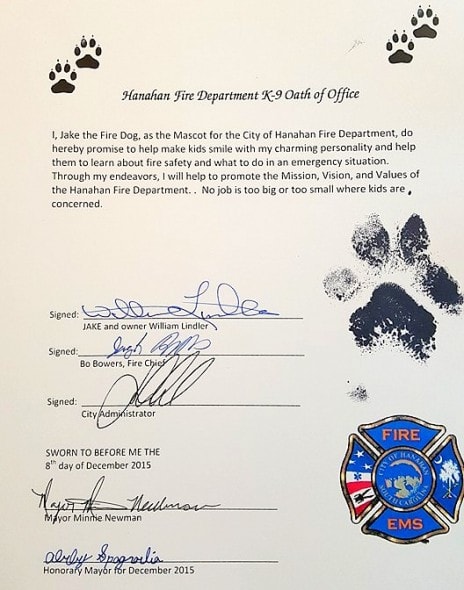 Hanahan Fire Department K-9 Oath of Office
I, Jake the Fire Dog, as the Mascot for the City of Hanahan Fire Department, do
hereby promise to help make kids smile with my charming personality and help
them to learn about fire safety and what to do in an emergency situation.
Through my endeavors, I will help to promote the Mission, Vision, and Values of
the Hanahan Fire Department. . No job is too big or too small where kids are
concerned.
Signed: William Lindler
JAKE and owner William Lindler
Signed:
Bo Bowers, Fire Chief
Signed:
City Administrator
SWORN TO BEFORE ME THE
8th day of December 2015
Mayor Newman
Mayor Minnie Newman
Honorary Mayor for December 2015
FIRE
CITY OF HANAHAN
SOUTH CAROLINA
EMS